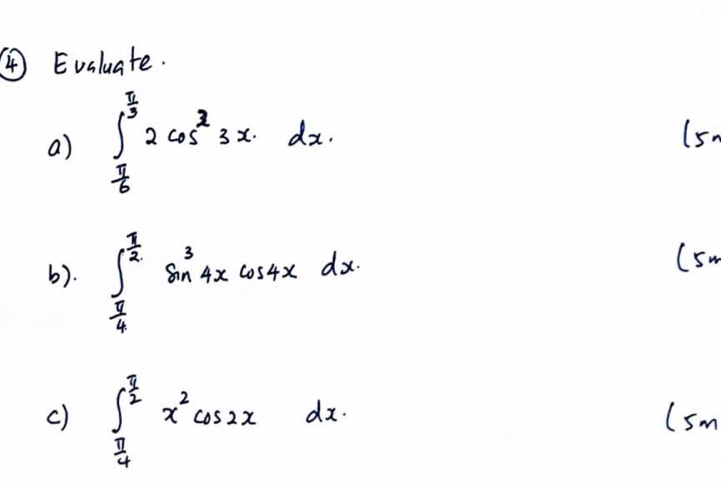 ④ Evaluate.
a) ∫_{π/6}^{π/3} 2 cos² 3x. dx. (5m
b). ∫_{π/4}^{π/2} sin³ 4x cos4x dx. (5m
c) ∫_{π/4}^{π/2} x² cos2x dx. (5m